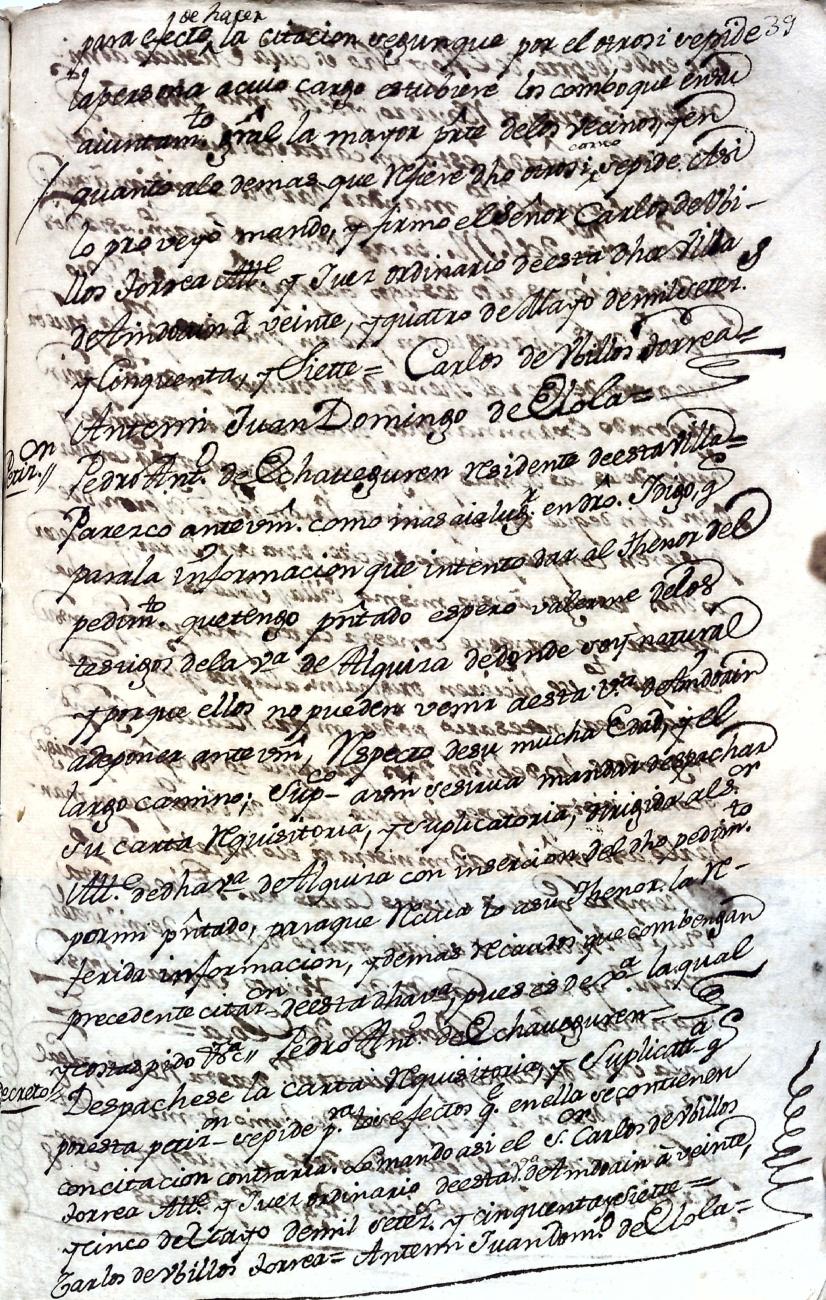 39
de hazer
para efecto la citacion segun que por el otrosi se pide
la persona a cuio cargo estubiere los comboque en su
aiuntam.to gñral la mayor pñte de los vecinos, y en
quanto a lo demas que refiere dho otrosi como se pide. Asi
lo proveyò mando, y firmo el señor Carlos de Vbi-
llos Torrea Alld.e y Juez ordinario de esta dha Villa
de Andoain â veinte, y quatro de Mayo de mil setez.s
y Cinquenta, y Siette = Carlos de Vbillos Torrea =
Antemi Juan Domingo de Elola =
Petiz.on //
Pedro Ant.o de Echaueguren residente de esta Villa =
Parezco ante vm̃. como mas aia lug.r en dro. Y digo, q.
para la informacion que intento dar al thenor del
pedim.to que tengo pñtado espero valerme de los
testigos de la v.a de Alquiza de donde soy natural
y porque ellos no pueden venir a esta v.a de Andoain
a deponer ante vm̃, respecto de su mucha Edad, y el
largo camino; Sup.co a vm̃ se sirua mandar despachar
su carta requisitoria, y suplicatoria, dirigida al s.or
Alld.e de dha v.a de Alquiza con insercion del dho pedim.to
por mi pñtado, para que reciua a su thenor la re-
ferida informacion, y demas recaudos que combengan
precedente citaz.on de esta dha v.a, pues es de la qual
y costas pido &c.a // Pedro Ant.o de Echaueguren =
Decreto //
Despachese la carta requisitoria, y Suplicat.a q.
por esta petiz.on se pide p.ra los efectos q.e en ella se contienen
con citacion contraria. Lo mando asi el s.or Carlos de Vbillos
Torrea Alld.e y Juez ordinario de esta v.a de Andoain â veinte,
y cinco de Mayo de mil setez.s y cinquenta y siette =
Carlos de Vbillos Torrea = Antemi Juan Dom.o de Elola =